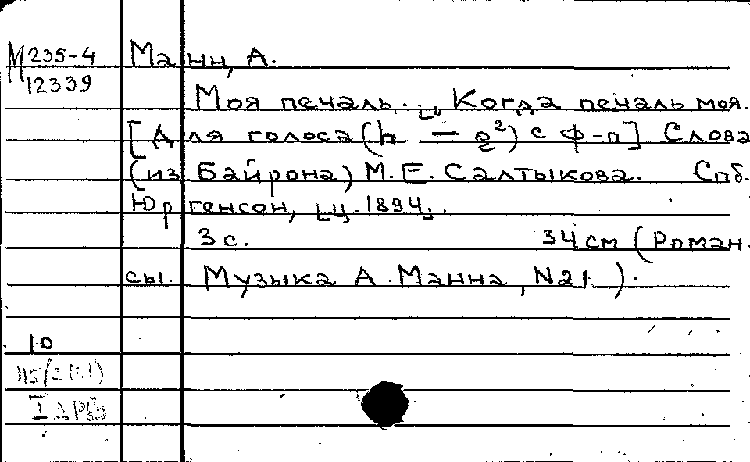 М 235-4 Манн, А.
12339
Моя печаль. „Когда печаль моя.
[Для голоса (h — e²) с ф-п] Слова
(из Байрона) М.Е. Салтыкова. Спб.
Юргенсон, ц. 1894.
3 с. 34 см (Роман-
сы. Музыка А. Манна, N21.).
10